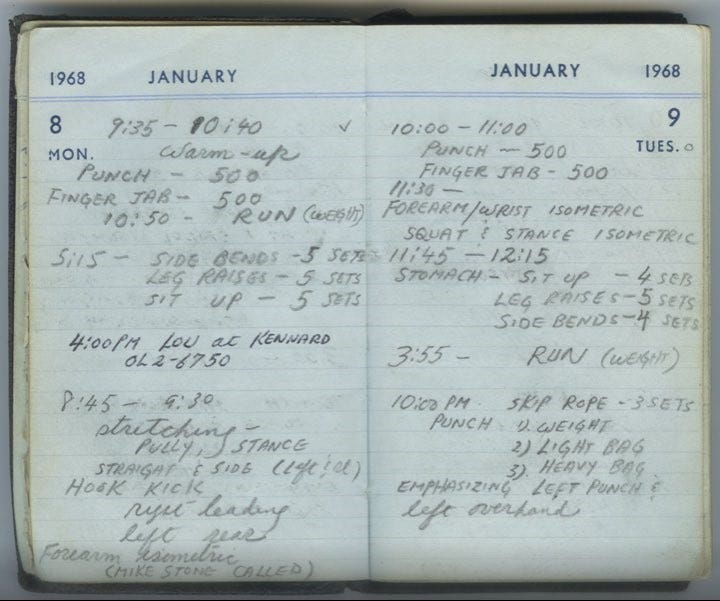 1968 JANUARY
8 9:35 – 10:40 ✓
MON. Warm-up
PUNCH – 500
FINGER JAB – 500
10:50 – RUN (WEIGHT)
5:15 – SIDE BENDS – 5 SETS
LEG RAISES – 5 SETS
SIT UP – 5 SETS
4:00PM LOU at KENNARD
OL2-6750
8:45 – 9:30
stretching –
PULLY, STANCE
STRAIGHT & SIDE (left &)
HOOK KICK
leading
left rear
Forearm isometric
(MIKE STONE CALLED)
JANUARY 1968
10:00 – 11:00 9
PUNCH – 500 TUES.
FINGER JAB – 500
11:30 –
FOREARM/WRIST ISOMETRIC
SQUAT & STANCE ISOMETRIC
11:45 – 12:15
STOMACH – SIT UP – 4 SETS
LEG RAISES – 5 SETS
SIDE BENDS – 4 SETS
3:55 – RUN (WEIGHT)
10:00 PM SKIP ROPE – 3 SETS
PUNCH 1). WEIGHT
2) LIGHT BAG
3). HEAVY BAG
EMPHASIZING LEFT PUNCH &
left overhand